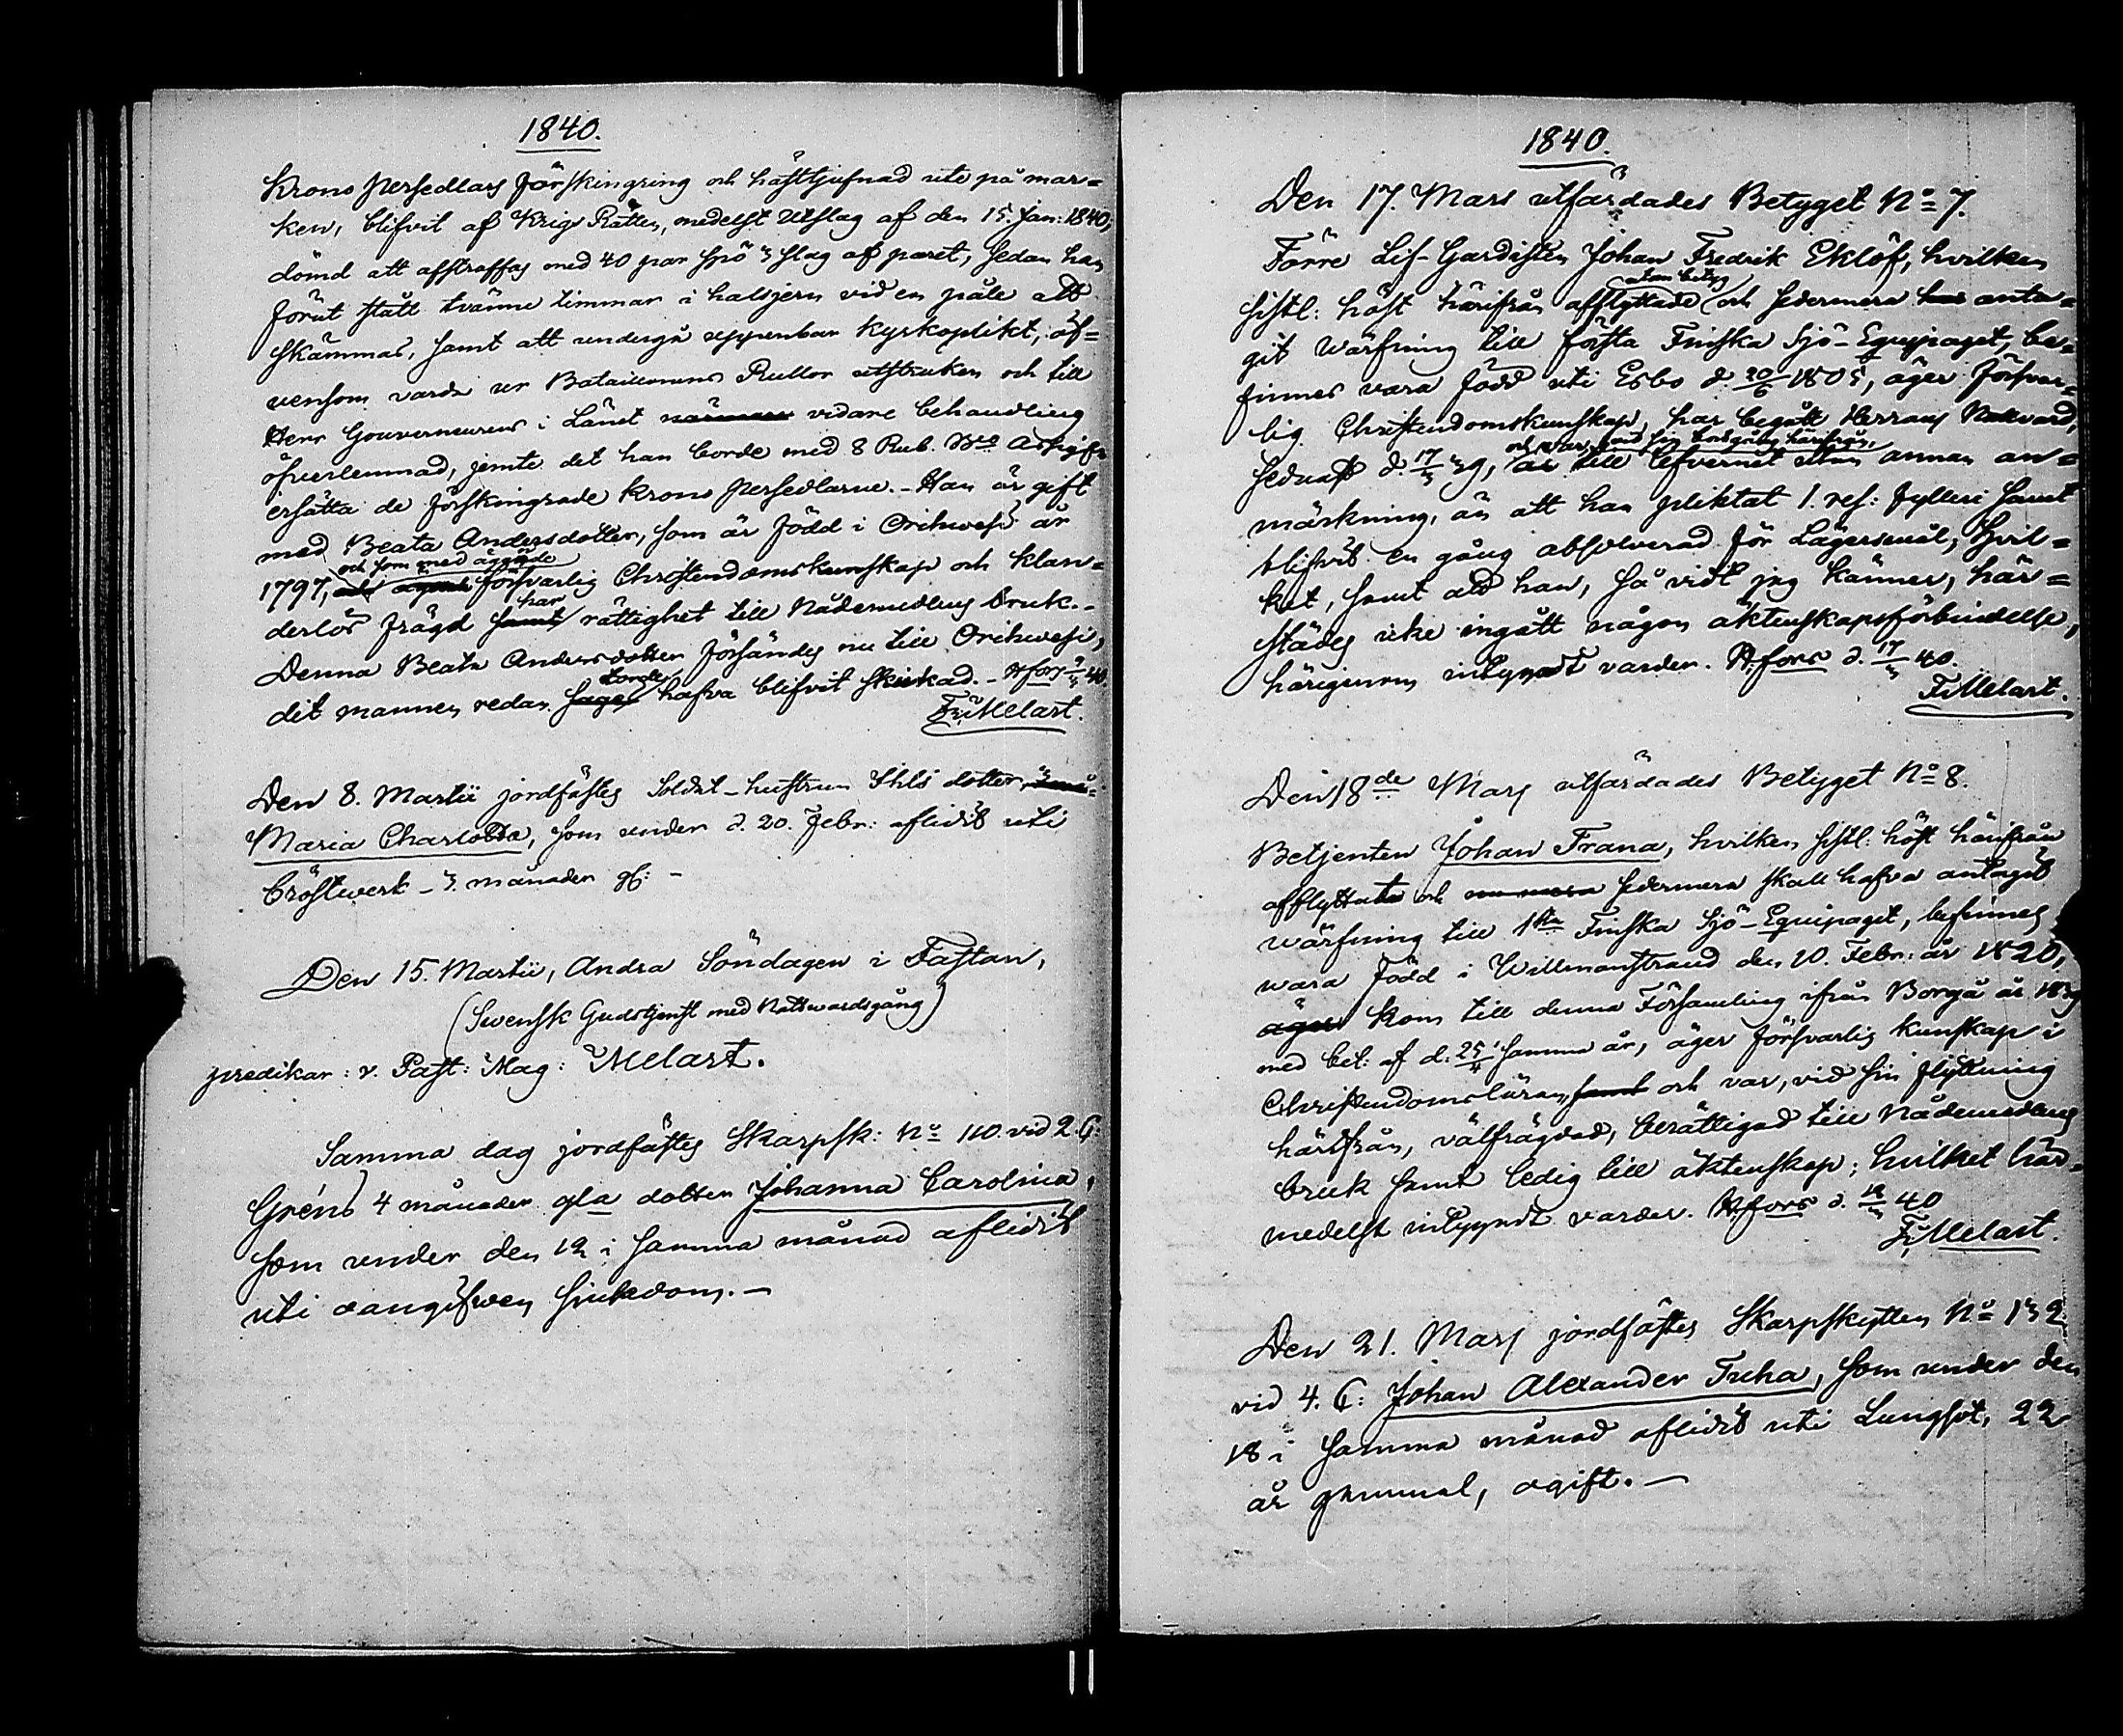 1840.
Krono Persedlars förskingring och hästtjufnad ute på mar=
ken, blifvit af Krigs Rätten, medelst Utslag af den 15. Jan: 1840,
dömd att afstraffas med 40 par spö 3 slag af paret, sedan han
förut stått tvänne timmar i halsjern vid en påle att
skämmas, samt att undergå uppenbar Kyrkoplikt, äf=
vensom varda ur Bataillonens Rullor utstruken och till
Herr Gouverneurens i Länet närmare vidare behandling
öfverlemnad, jemte det han borde med 8 Rub. Bco Assign
ersätta de förskingrade Krono Persedlarne. - Han är gift
med Beata Andersdotter, som är född i Orihwesi år
och som med ägande
1797, försvarlig Christendomskunskap och klan=
har
derlös frägd samt rättighet till Nådemedlens bruk. -
Denna Beata Andersdotter försändes nu till Orihwesi,
torde
dit mannen redan säges hafva blifvit skickad. - Hfors 40.
F: Melart.
Den 8. Martii jordfästes Soldat-hustrun dotter
Maria Charlotta, som under d. 20. Febr: aflidit uti
bröstwerk - 3. månader gl: -
Den 15. Martii, Andra Söndagen i Fastan,
(Swensk Gudstjenst med Nattwardsgång)
predikar: v. Past: Mag: Melart.
Samma dag jordfästes Skarpsk: No 110. vid 2. C:
Gréns 4 månader gla dotter Johanna Carolina,
som under den 12 i samma månad aflidit
uti oangifwen sjukdom. -
1840.
Den 17. Mars utfärdades Betyget No 7.
Förre Lif-Gardisten Johan Fredrik Eklöf, hvilken
utan betyg
sistl: höst härifrån afflyttade och sedermera har anta=
git Wärfning till första Finska Sjö-Equipaget, be=
finnes vara född uti Esbo d. 20/6 1805, äger försvar=
lig Christendomskunskap, har begått Herrans Nattvard,
och var, vid sin bortgång härifrån,
sednast d. 17/3 39, är till lefvernet utan annan an=
märkning, än att han pliktat 1. res: fylleri samt
blifvit en gång absolverad för Lägersmål, Hvil=
ket, samt att han, så vidt jag känner, här=
städes icke ingått någon äktenskapsförbindelse,
härigenom intygadt varder. Hfors d. 17/3 40.
F: Melart.
Den 18de Mars utfärdades Betyget No 8.
Betjenten Johan Frana, hvilken sistl: höst härifrån
afflyttat och nu mera sedermera skall hafva antagit
wärfning till 1sta Finska Sjö-Equipaget, befinnes
vara född i Willmanstrand den 10. Febr: år 1820,
äger kom till denna Församling ifrån Borgå år 1839
med bet: af d: 25/4 samma år, äger försvarlig kunskap i
Christendomsläran, samt och var, vid sin flyttning
härifrån, välfrägdad, berättigad till Nådemedlens
bruk samt ledig till äktenskap; hvilket här=
medelst intygadt varder. Hfors d. 18/3 40
F: Melart.
Den 21. Mars jordfästes Skarpskytten No 132
vid 4. C: Johan Alexander Tuha, som under den
18 i samma månad aflidit uti Lungsot, 22
år gammal, ogift. -